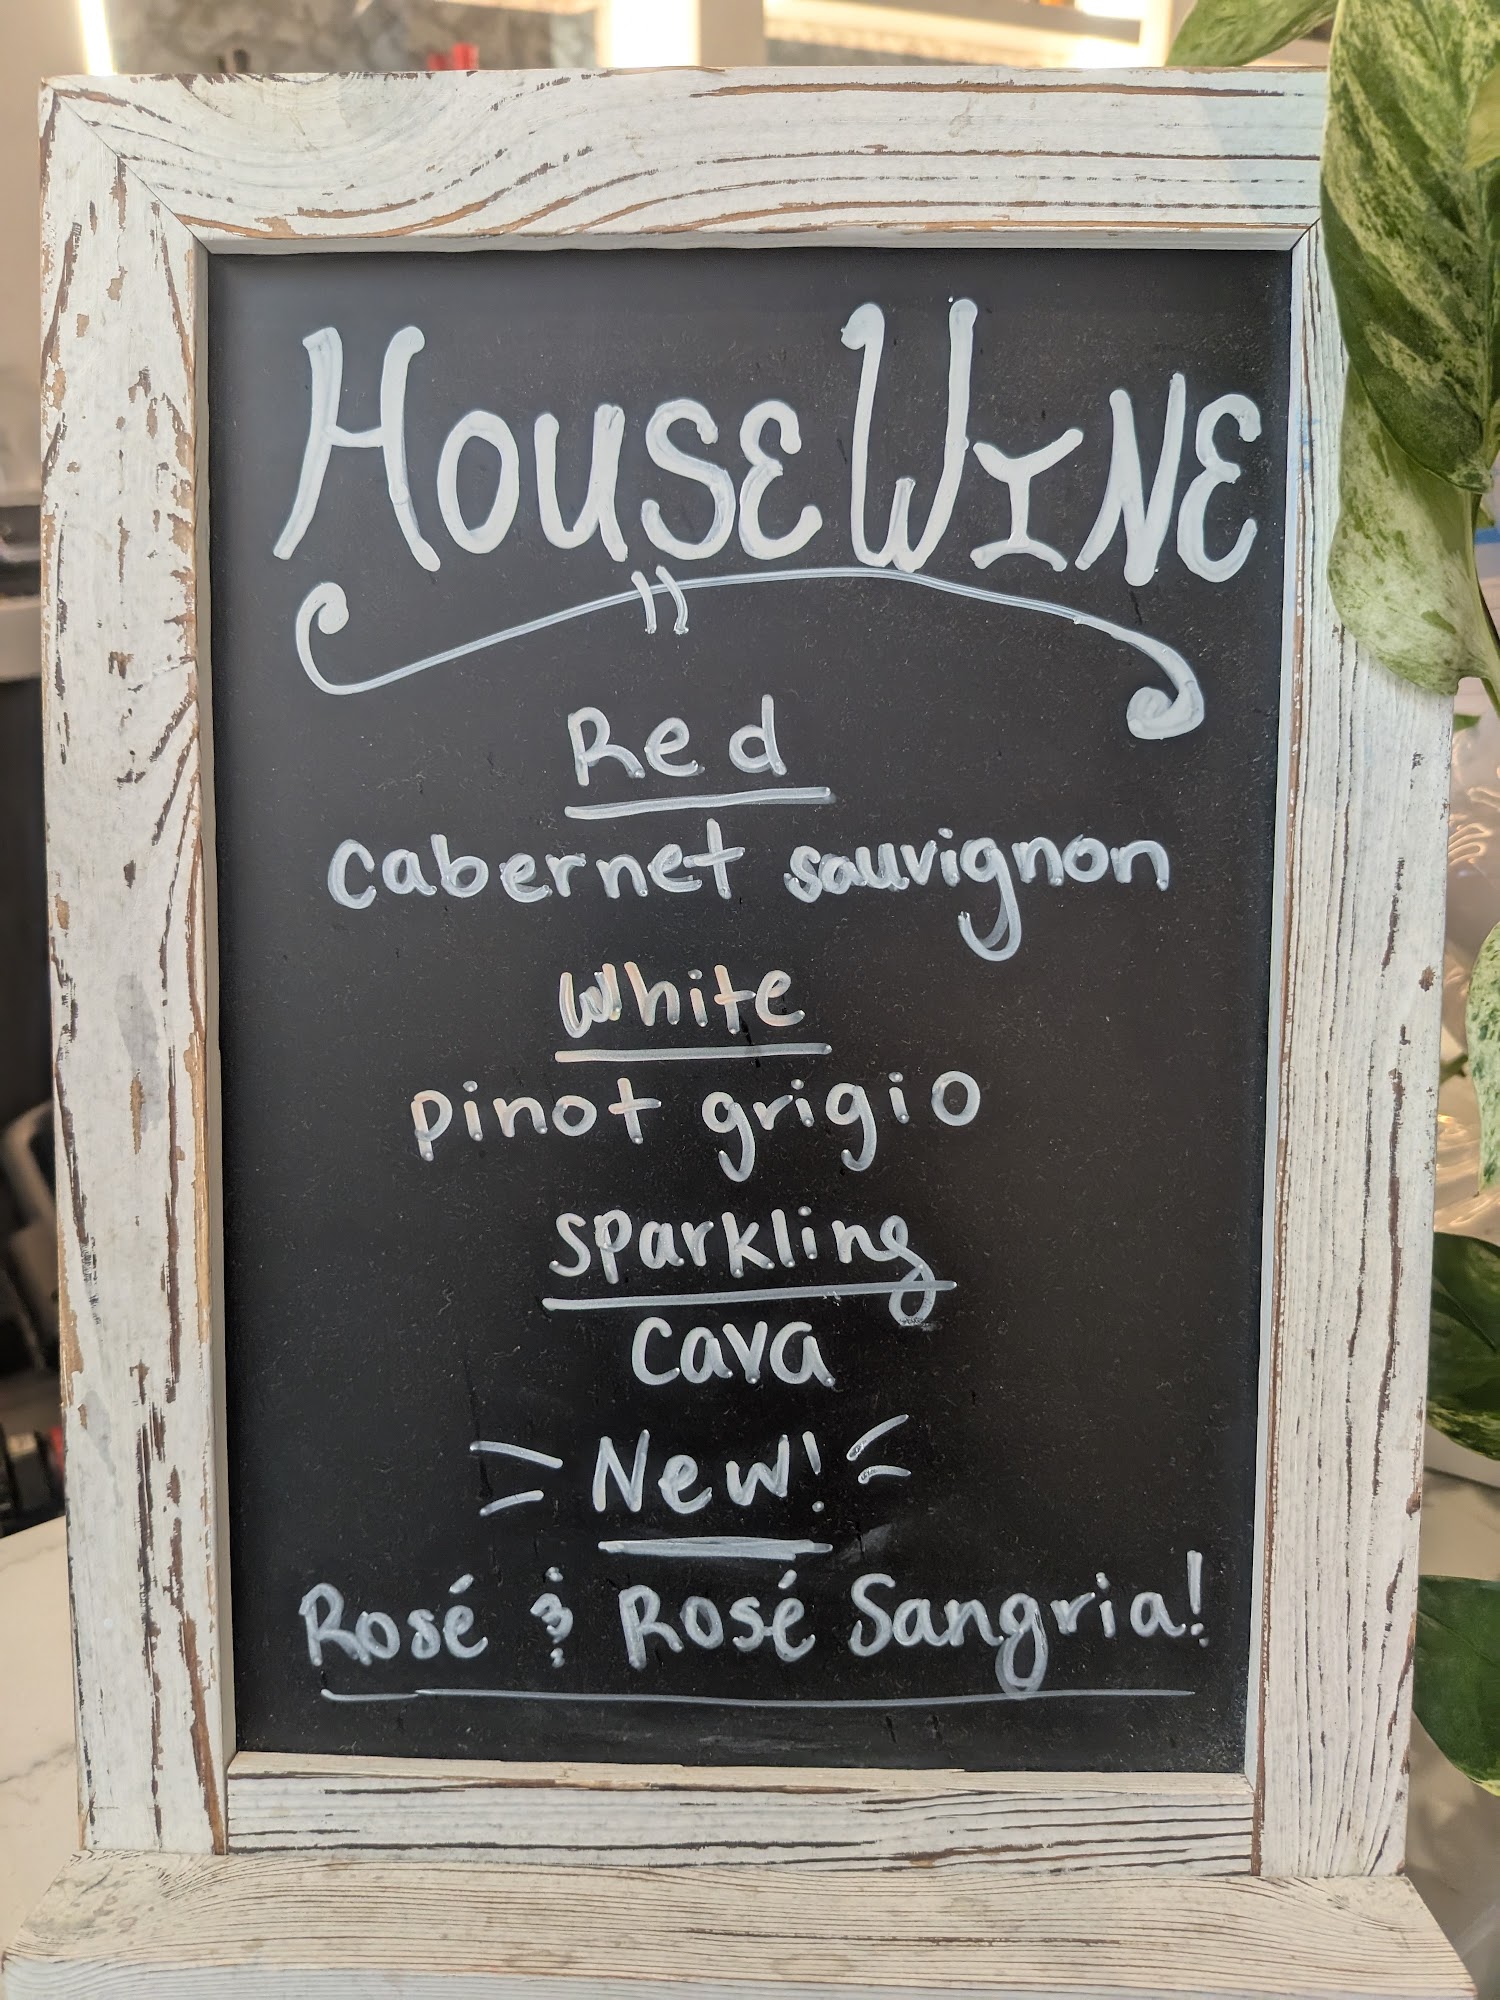 HOUSE WINE
Red
cabernet sauvignon
White
pinot grigio
sparkling
cava
New!
Rosé & Rosé Sangria!